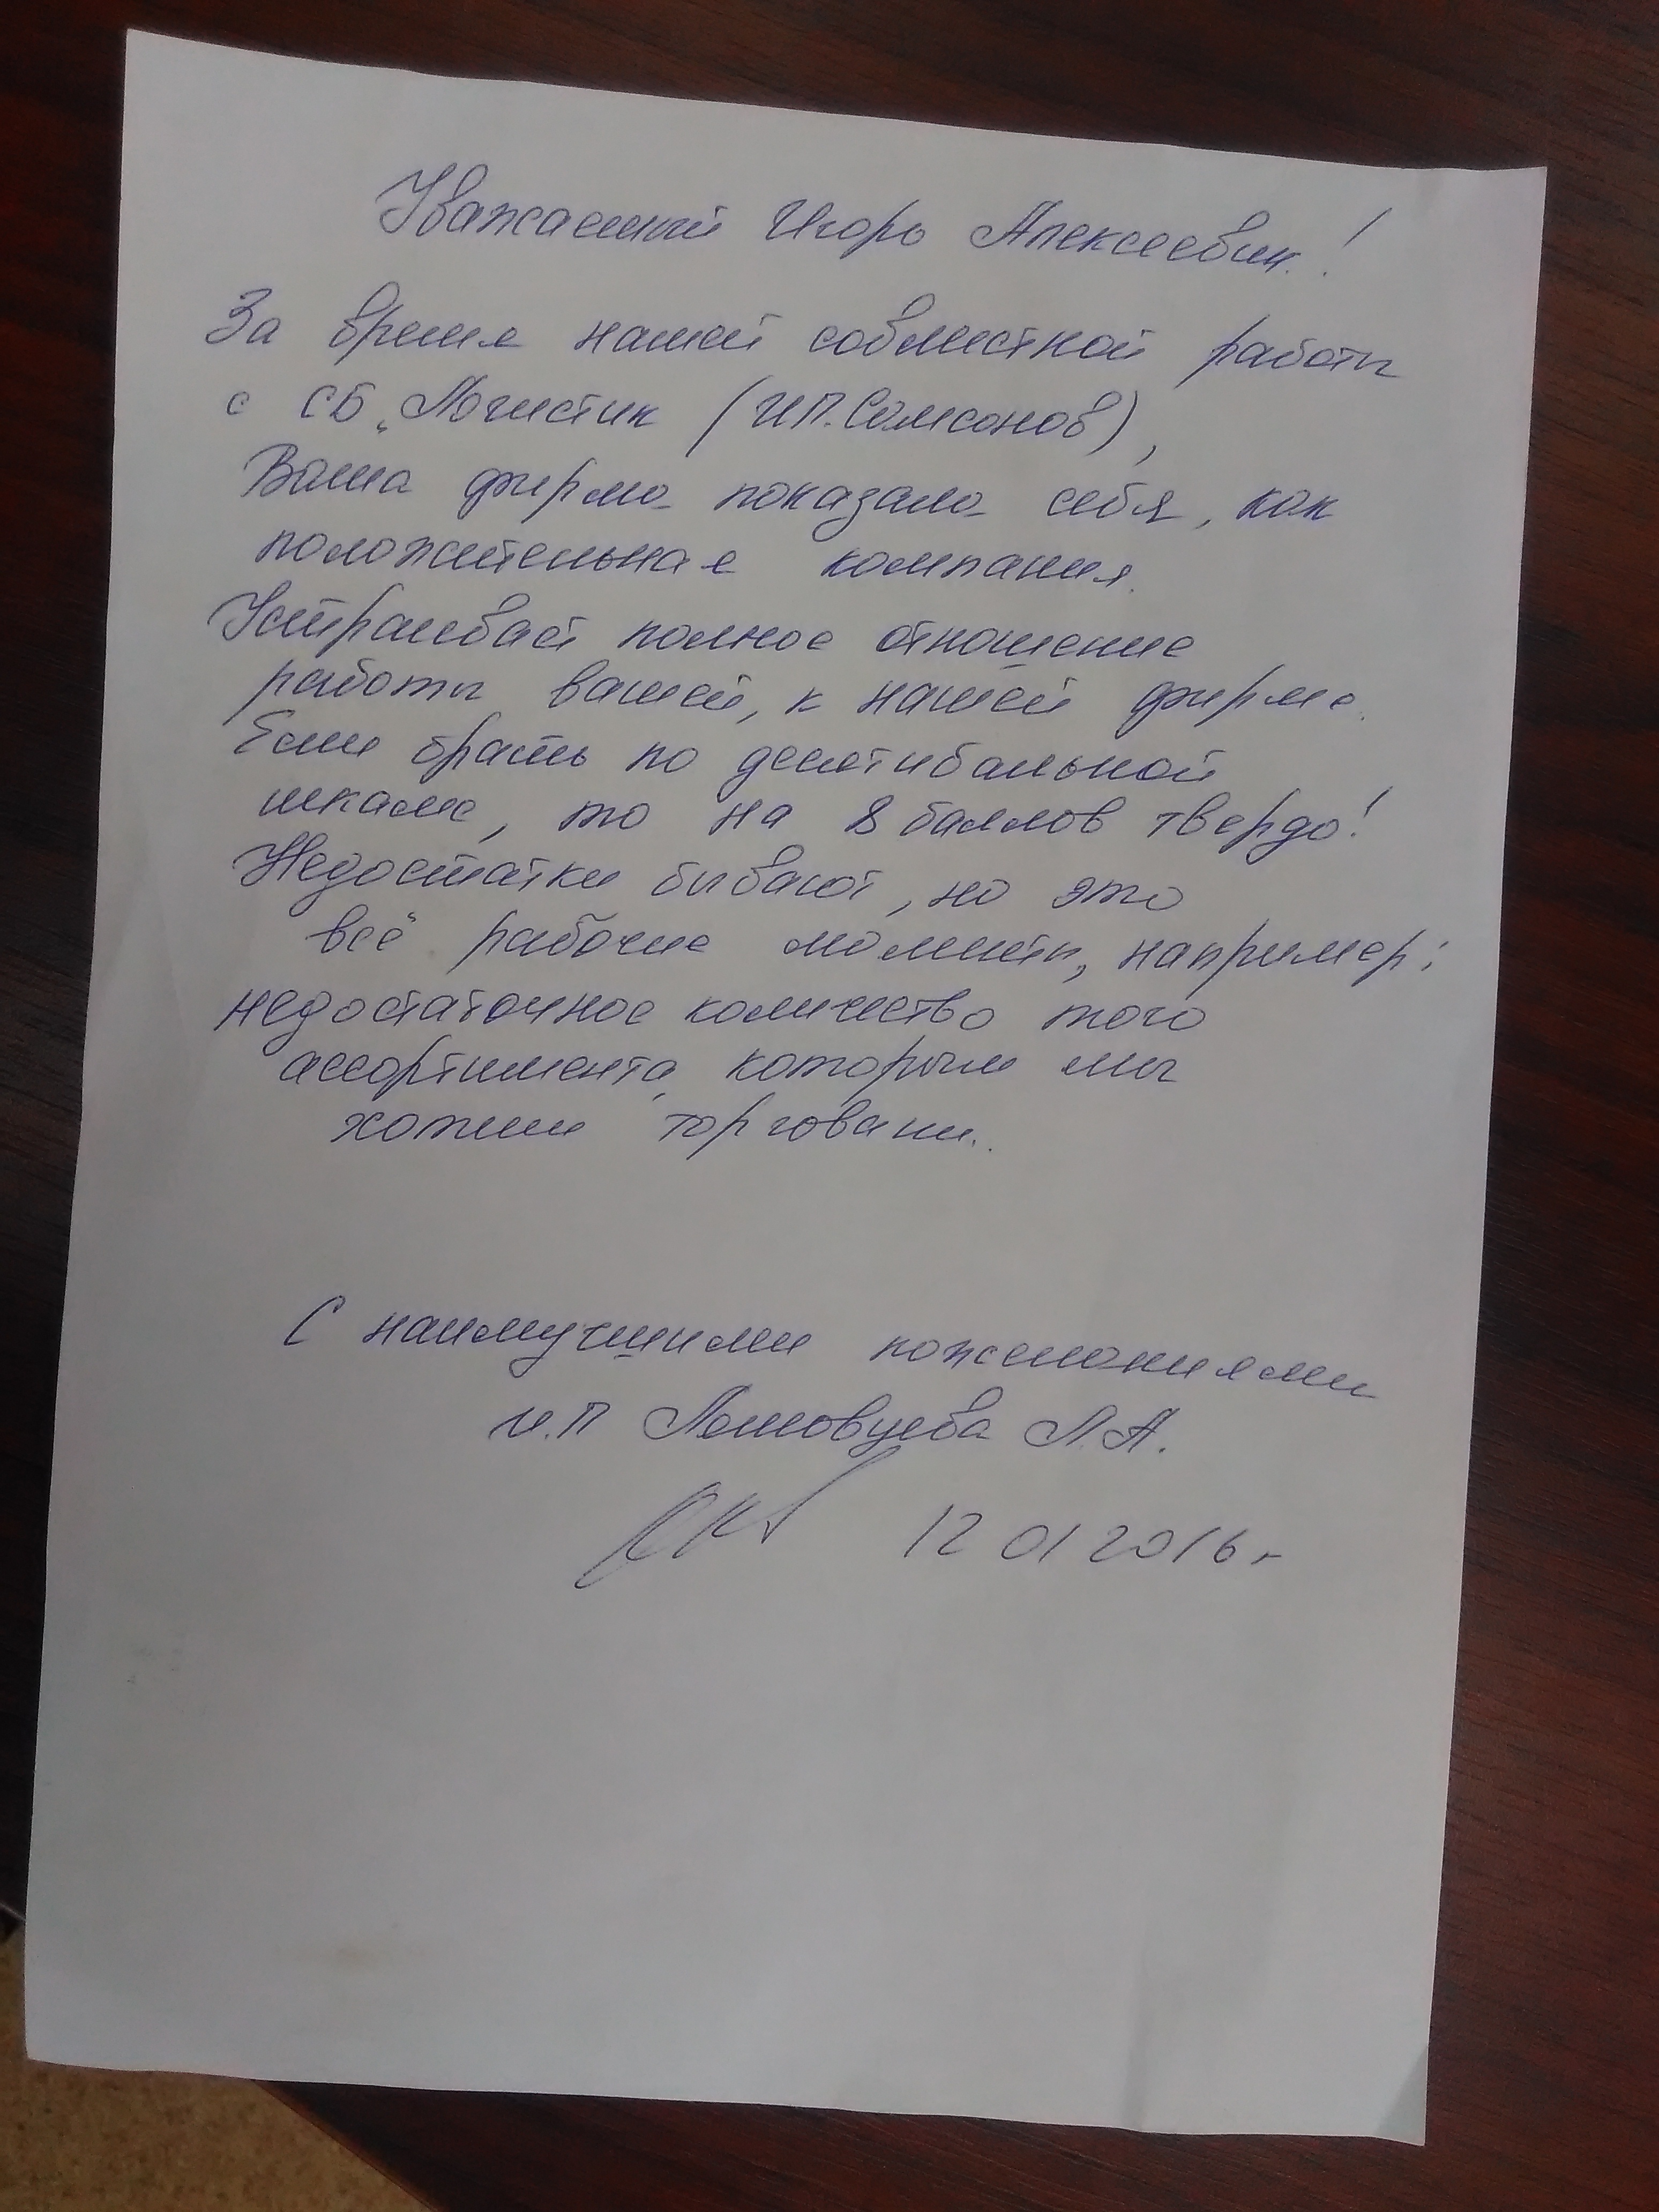 Уважаемый Игорь Алексеевич!
За время нашей совместной работы
с СБ „Логистик (ИП. Самсонов),
Ваша фирма показала себя, как
положительная компания.
Устраивает полное отношение
работы вашей, к нашей фирме.
Если брать по десятибальной
шкале, то на 8 баллов твердо!
Недостатки бывают, но это
всё рабочие моменты, например:
недостаточное количество того
ассортимента, которым мы
хотим торговать.
С наилучшими пожеланиями
и.п Л.А.
12 01 2016 г